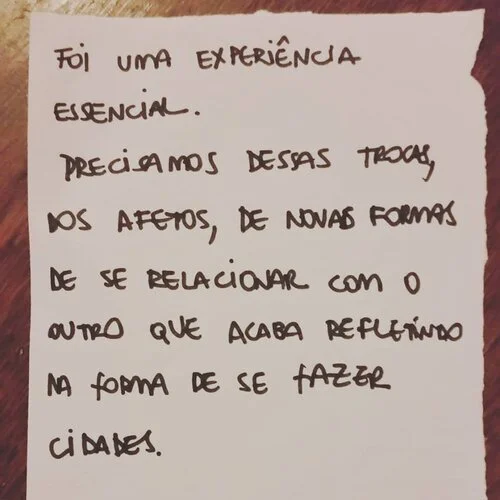 FOI UMA EXPERIÊNCIA
ESSENCIAL.
PRECISAMOS DESSAS TROCAS,
DOS AFETOS, DE NOVAS FORMAS
DE SE RELACIONAR COM O
OUTRO QUE ACABA REFLETINDO
NA FORMA DE SE FAZER
CIDADES.